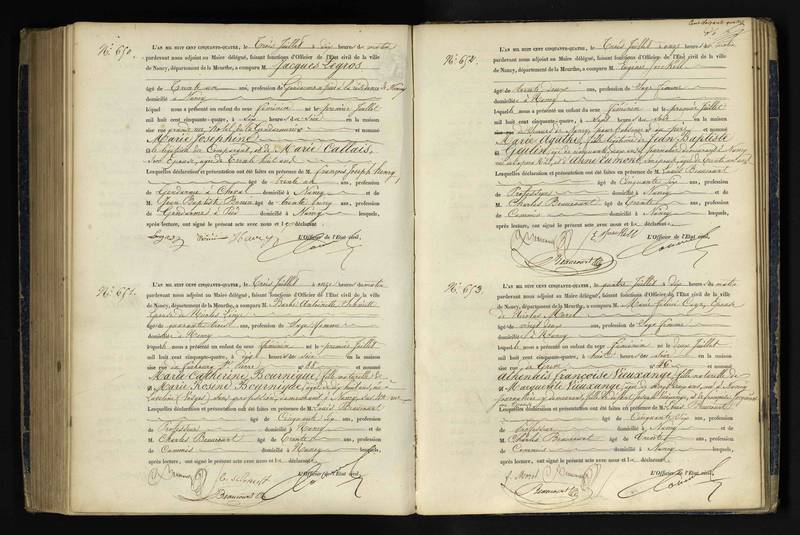 N.º 650.
L'AN MIL HUIT CENT CINQUANTE-QUATRE, le Trois Juillet à dix heures du matin
pardevant nous adjoint au Maire délégué, faisant fonctions d'Officier de l'Etat civil de la ville
de Nancy, département de la Meurthe, a comparu M. Jacques Legros
âgé de Trente un ans, profession de Gendarme à pied à la résidence de Nancy
domicilié à Nancy
lequel nous a présenté un enfant du sexe féminin né le premier Juillet
mil huit cent cinquante-quatre, à six heures du soir en la maison
sise rue et nommé
Marie Josephine
fille légitime du Comparant et de Marie Callais,
son Epouse, âgée de Trente huit ans
Lesquelles déclaration et présentation ont été faites en présence de M. François Joseph Henry
âgé de trente un ans, profession
de Gendarme à Cheval domicilié à Nancy et de
M. Jean Baptiste âgé de trente ans, profession
de Gendarme à Pied domicilié à Nancy lesquels,
après lecture, ont signé le présent acte avec nous et le déclarant.
L'Officier de l'Etat civil,
N.º 651.
L'AN MIL HUIT CENT CINQUANTE-QUATRE, le Trois Juillet à onze heures du matin
pardevant nous adjoint au Maire délégué, faisant fonctions d'Officier de l'Etat civil de la ville
de Nancy, département de la Meurthe, a comparu M. Barbe Antoinette Schmitt
Epouse de Nicolas
âgé de quarante trois ans, profession de Sage femme
domicilié à Nancy
lequel nous a présenté un enfant du sexe féminin né le premier Juillet
mil huit cent cinquante-quatre, à heures du soir en la maison
sise rue du Faubourg St Pierre et nommé
Marie Catherine Bournique, fille naturelle de
Marie Rosine Bournique, âgée de dix huit ans, née à
(Vosges), sans profession, demeurant à Nancy
Lesquelles déclaration et présentation ont été faites en présence de M. Louis Beaucourt
âgé de Cinquante six ans, profession
de Professeur domicilié à Nancy et de
M. Charles Beaucourt âgé de Trente ans, profession
de Commis domicilié à Nancy lesquels,
après lecture, ont signé le présent acte avec nous et le déclarant.
L'Officier de l'Etat civil,
N.º 652.
L'AN MIL HUIT CENT CINQUANTE-QUATRE, le Trois Juillet à onze heures du matin
pardevant nous adjoint au Maire délégué, faisant fonctions d'Officier de l'Etat civil de la ville
de Nancy, département de la Meurthe, a comparu M. Eugénie
âgé de trente deux ans, profession de Sage femme
domicilié à Nancy
lequel nous a présenté un enfant du sexe féminin né le premier Juillet
mil huit cent cinquante-quatre, à Sept heures du soir en la maison
et nommé
Marie Agathe, fille légitime de Jean Baptiste
Lesquelles déclaration et présentation ont été faites en présence de M. Louis Beaucourt
âgé de Cinquante six ans, profession
de Professeur domicilié à Nancy et de
M. Charles Beaucourt âgé de Trente ans, profession
de Commis domicilié à Nancy lesquels,
après lecture, ont signé le présent acte avec nous et le déclarant.
L'Officier de l'Etat civil,
N.º 653.
L'AN MIL HUIT CENT CINQUANTE-QUATRE, le quatre Juillet à dix heures du matin
pardevant nous adjoint au Maire délégué, faisant fonctions d'Officier de l'Etat civil de la ville
de Nancy, département de la Meurthe, a comparu M. Epouse
de Nicolas Morel
âgé de vingt deux ans, profession de Sage femme
domicilié à Nancy
lequel nous a présenté un enfant du sexe féminin né le deux Juillet
mil huit cent cinquante-quatre, à huit heures du soir en la maison
sise rue et nommé
Athenaïs Françoise Vieuxange, fille naturelle de
Marguerite Vieuxange,
Lesquelles déclaration et présentation ont été faites en présence de M. Louis Beaucourt
âgé de Cinquante six ans, profession
de Professeur domicilié à Nancy et de
M. Charles Beaucourt âgé de Trente ans, profession
de Commis domicilié à Nancy lesquels,
après lecture, ont signé le présent acte avec nous et le déclarant.
L'Officier de l'Etat civil,